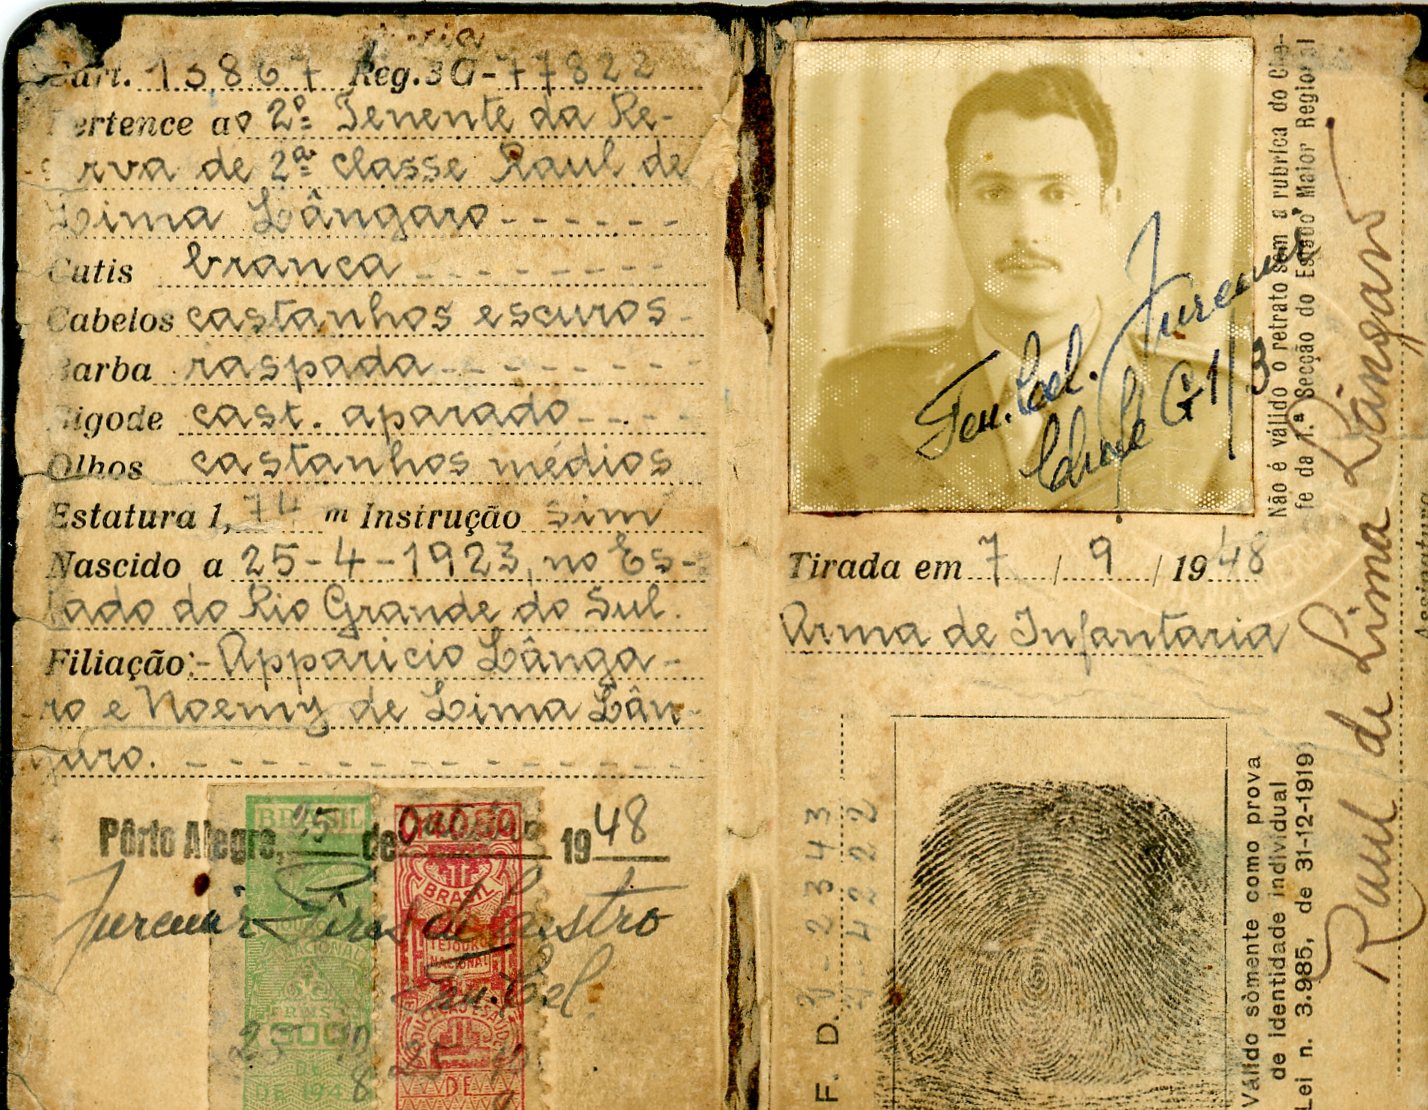 Cart. 13.867 Reg. 3G-77822
Pertence ao 2º Tenente da Re-
serva de 2ª classe Raul de
Lima Lângaro
Cutis branca
Cabelos castanhos escuros
Barba raspada
Bigode cast. aparado
Olhos castanhos médios
Estatura 1,74 m Instrução sim
Nascido a 25-4-1923, no Es-
tado do Rio Grande do Sul.
Filiação:- Apparicio Lânga-
ro e Noemy de Lima Lân-
garo.
Pôrto Alegre, 25 de 1948
BRASIL
BRASIL
TESOURO
NACIONAL
Juremir Pires de Castro
Ten. Cel.
Ten. Cel. Juremir
Chefe G1/3
Não é válido o retrato sem a rubrica do Che-
fe da 1.ª Secção do Estado Maior Regional
Tirada em 7 / 9 / 1948
Arma de Infantaria
F. D. 
Válido sòmente como prova
de identidade individual
Lei n. 3.985, de 31-12-1919
Raul de Lima Lângaro